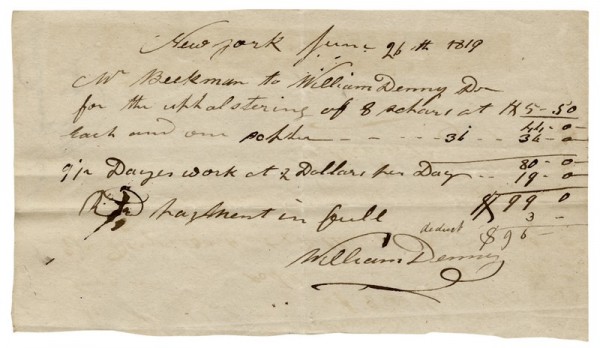 New york June 26th 1819
Mr Beekman to William Denny Dr
for the uphalstering of 8 schars at $ 5-50
44-0
each and one sophfa - - - 36 36-0
80-0
9 1/2 Dayes work at 2 Dollars per Day -- 19-0
$ 99 0
payment in full
deduct 3 -
$ 96 -
William Denny